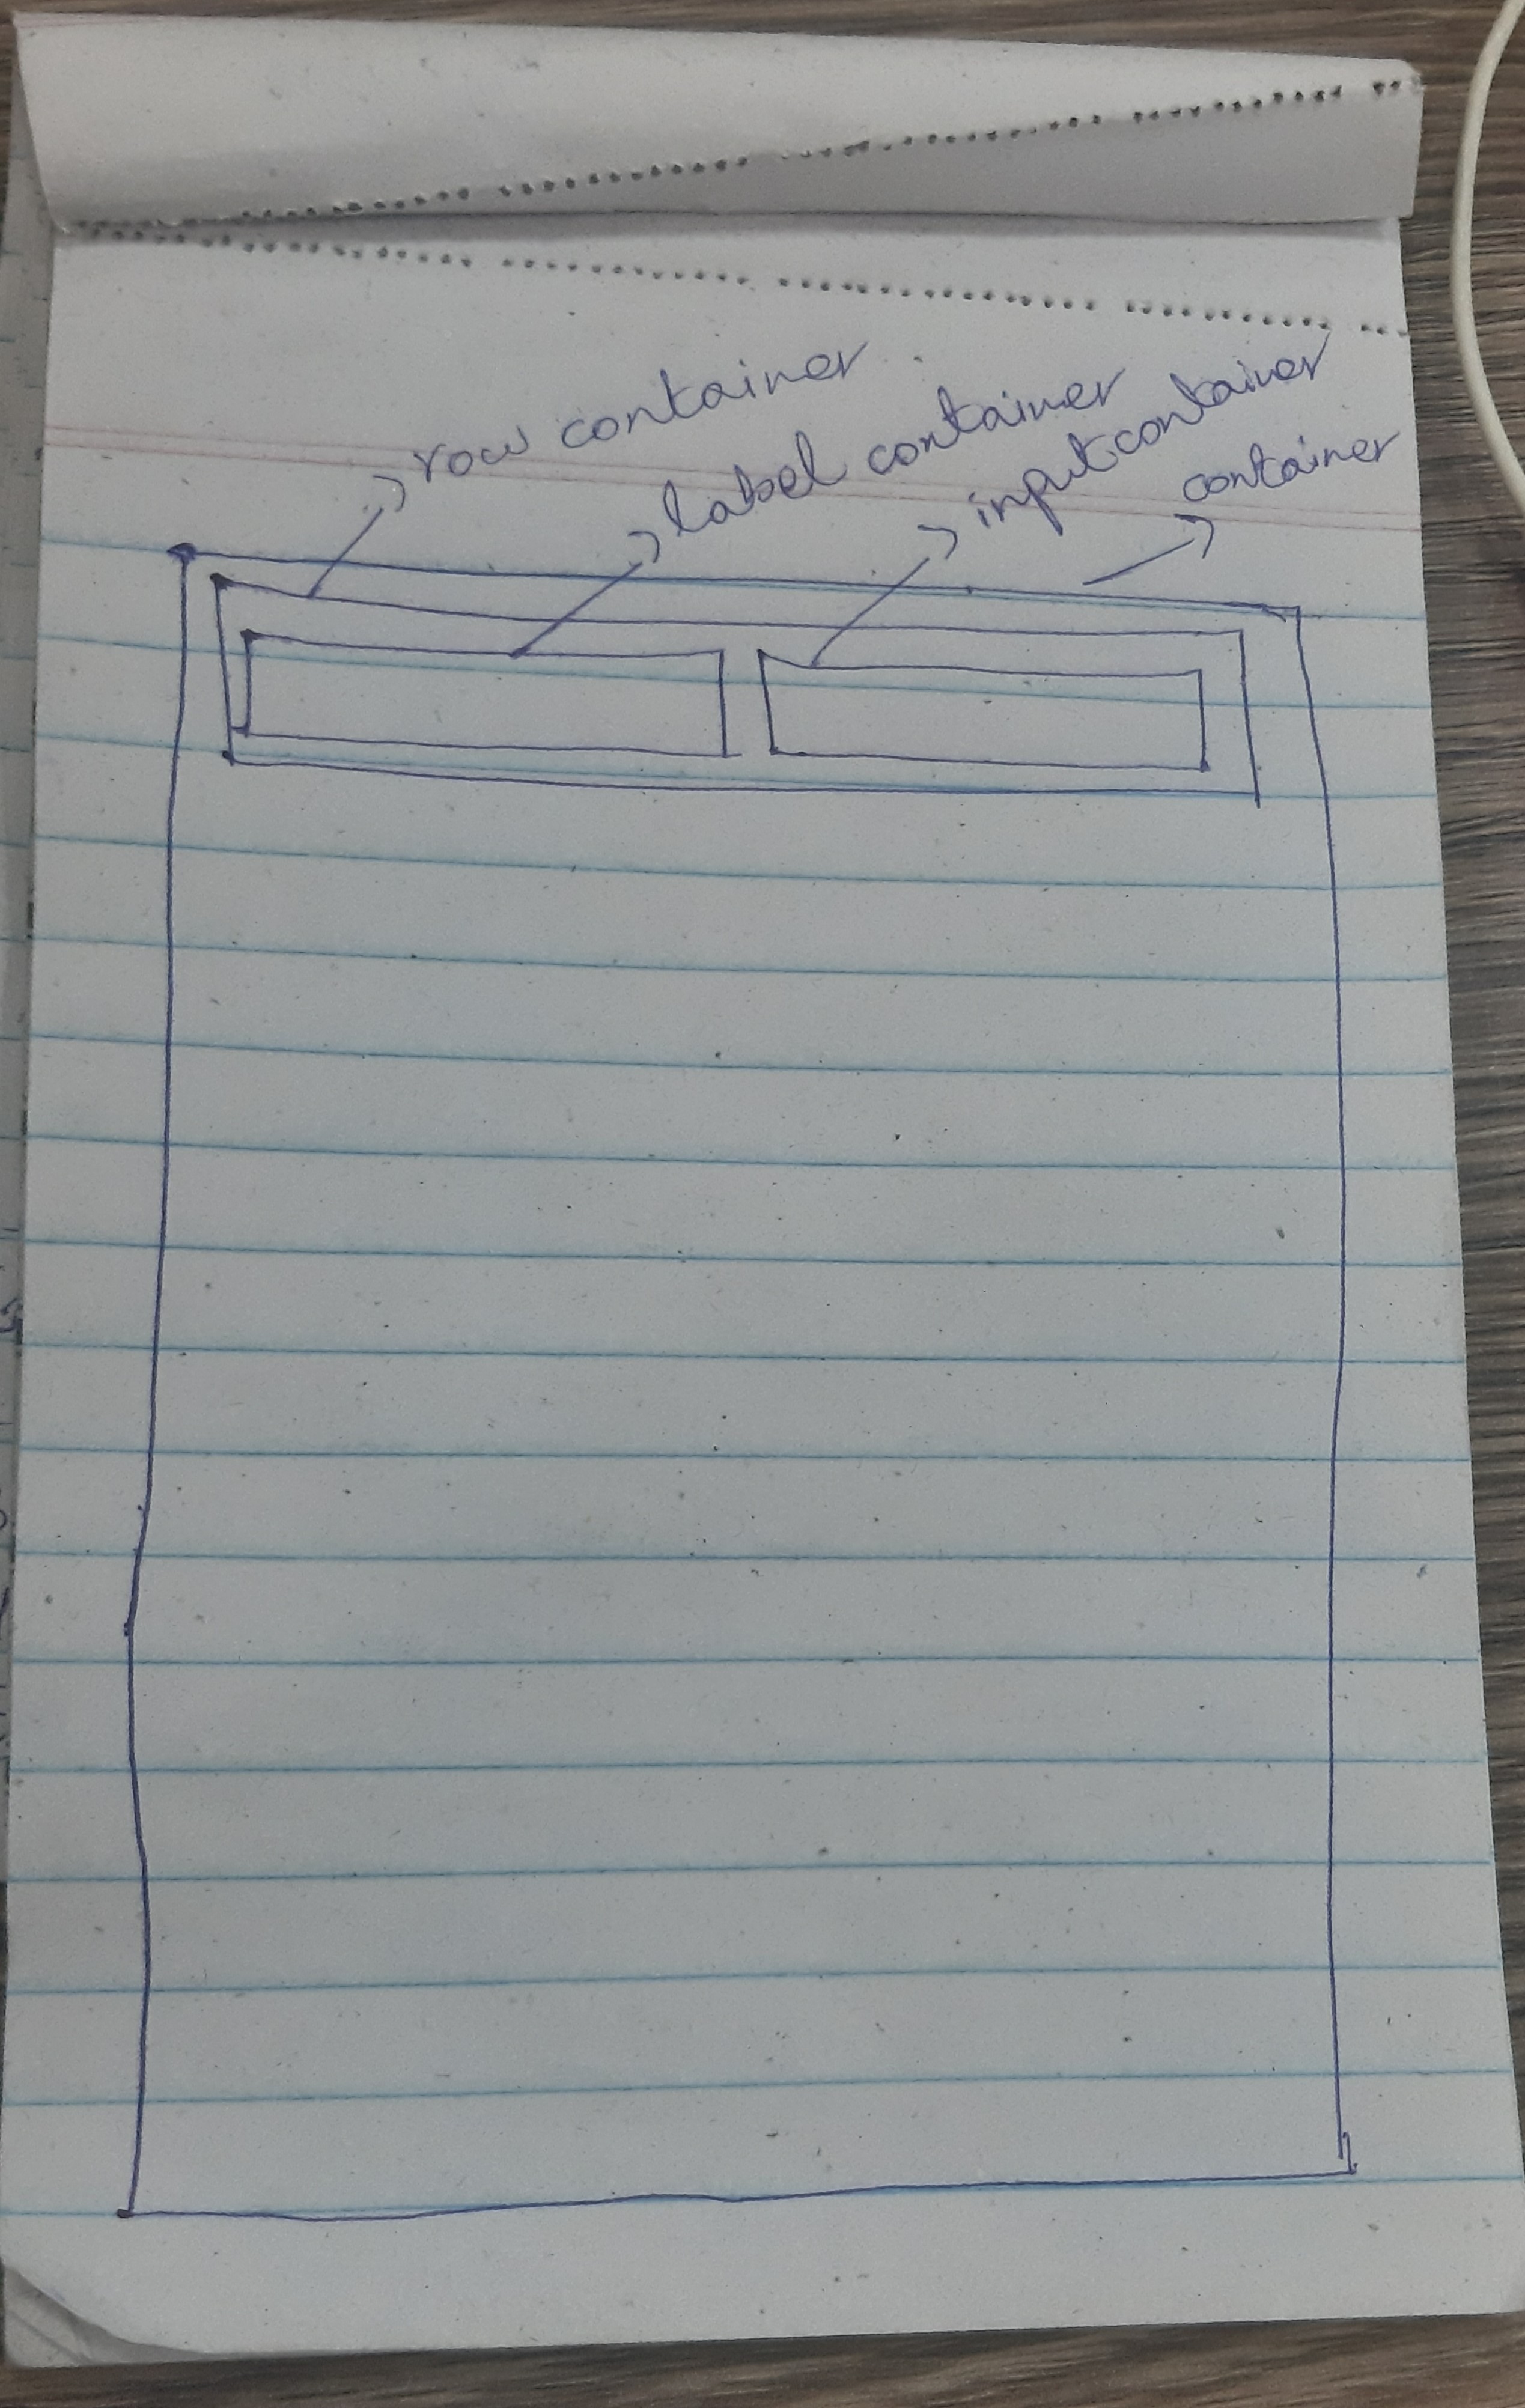 row container
label container
input container
container